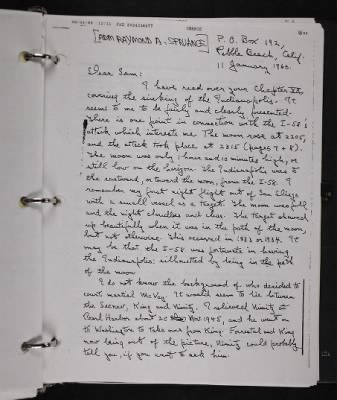 [ADM RAYMOND A. SPRUANCE]
P.O. Box 192,
Pebble Beach, Calif.
11 January 1960.
Dear Sam:
I have read over your Chapter
covering the sinking of the Indianapolis. It
seems to me to be fairly and clearly presented.
There is one point in connection with the I-58's
attack which interests me. The moon rose at 2205,
and the attack took place at 2315 (pages 7 & 8).
The moon was only 1 hour and 10 minutes high, or
still low on the horizon. The Indianapolis was to
the eastward, or toward the moon, from the I-58. I
remember my first night flight out of San Diego
with a small vessel as a target. The moon was full
and the night cloudless and clear. The target showed
up beautifully when it was in the path of the moon,
but not otherwise. This occurred in 1933 or 1934. It
may be that the I-58 was fortunate in having
the Indianapolis silhouetted by being in the path
of the moon.
I do not know the background of who decided to
court martial McVay. It would seem to lie between
the Secnav, King and Nimitz. I relieved Nimitz at
Pearl Harbor about 25 Nov 1945, and he went on
to Washington to take over from King. Forrestal and King
now being out of the picture, Nimitz could probably
tell you, if you want to ask him.